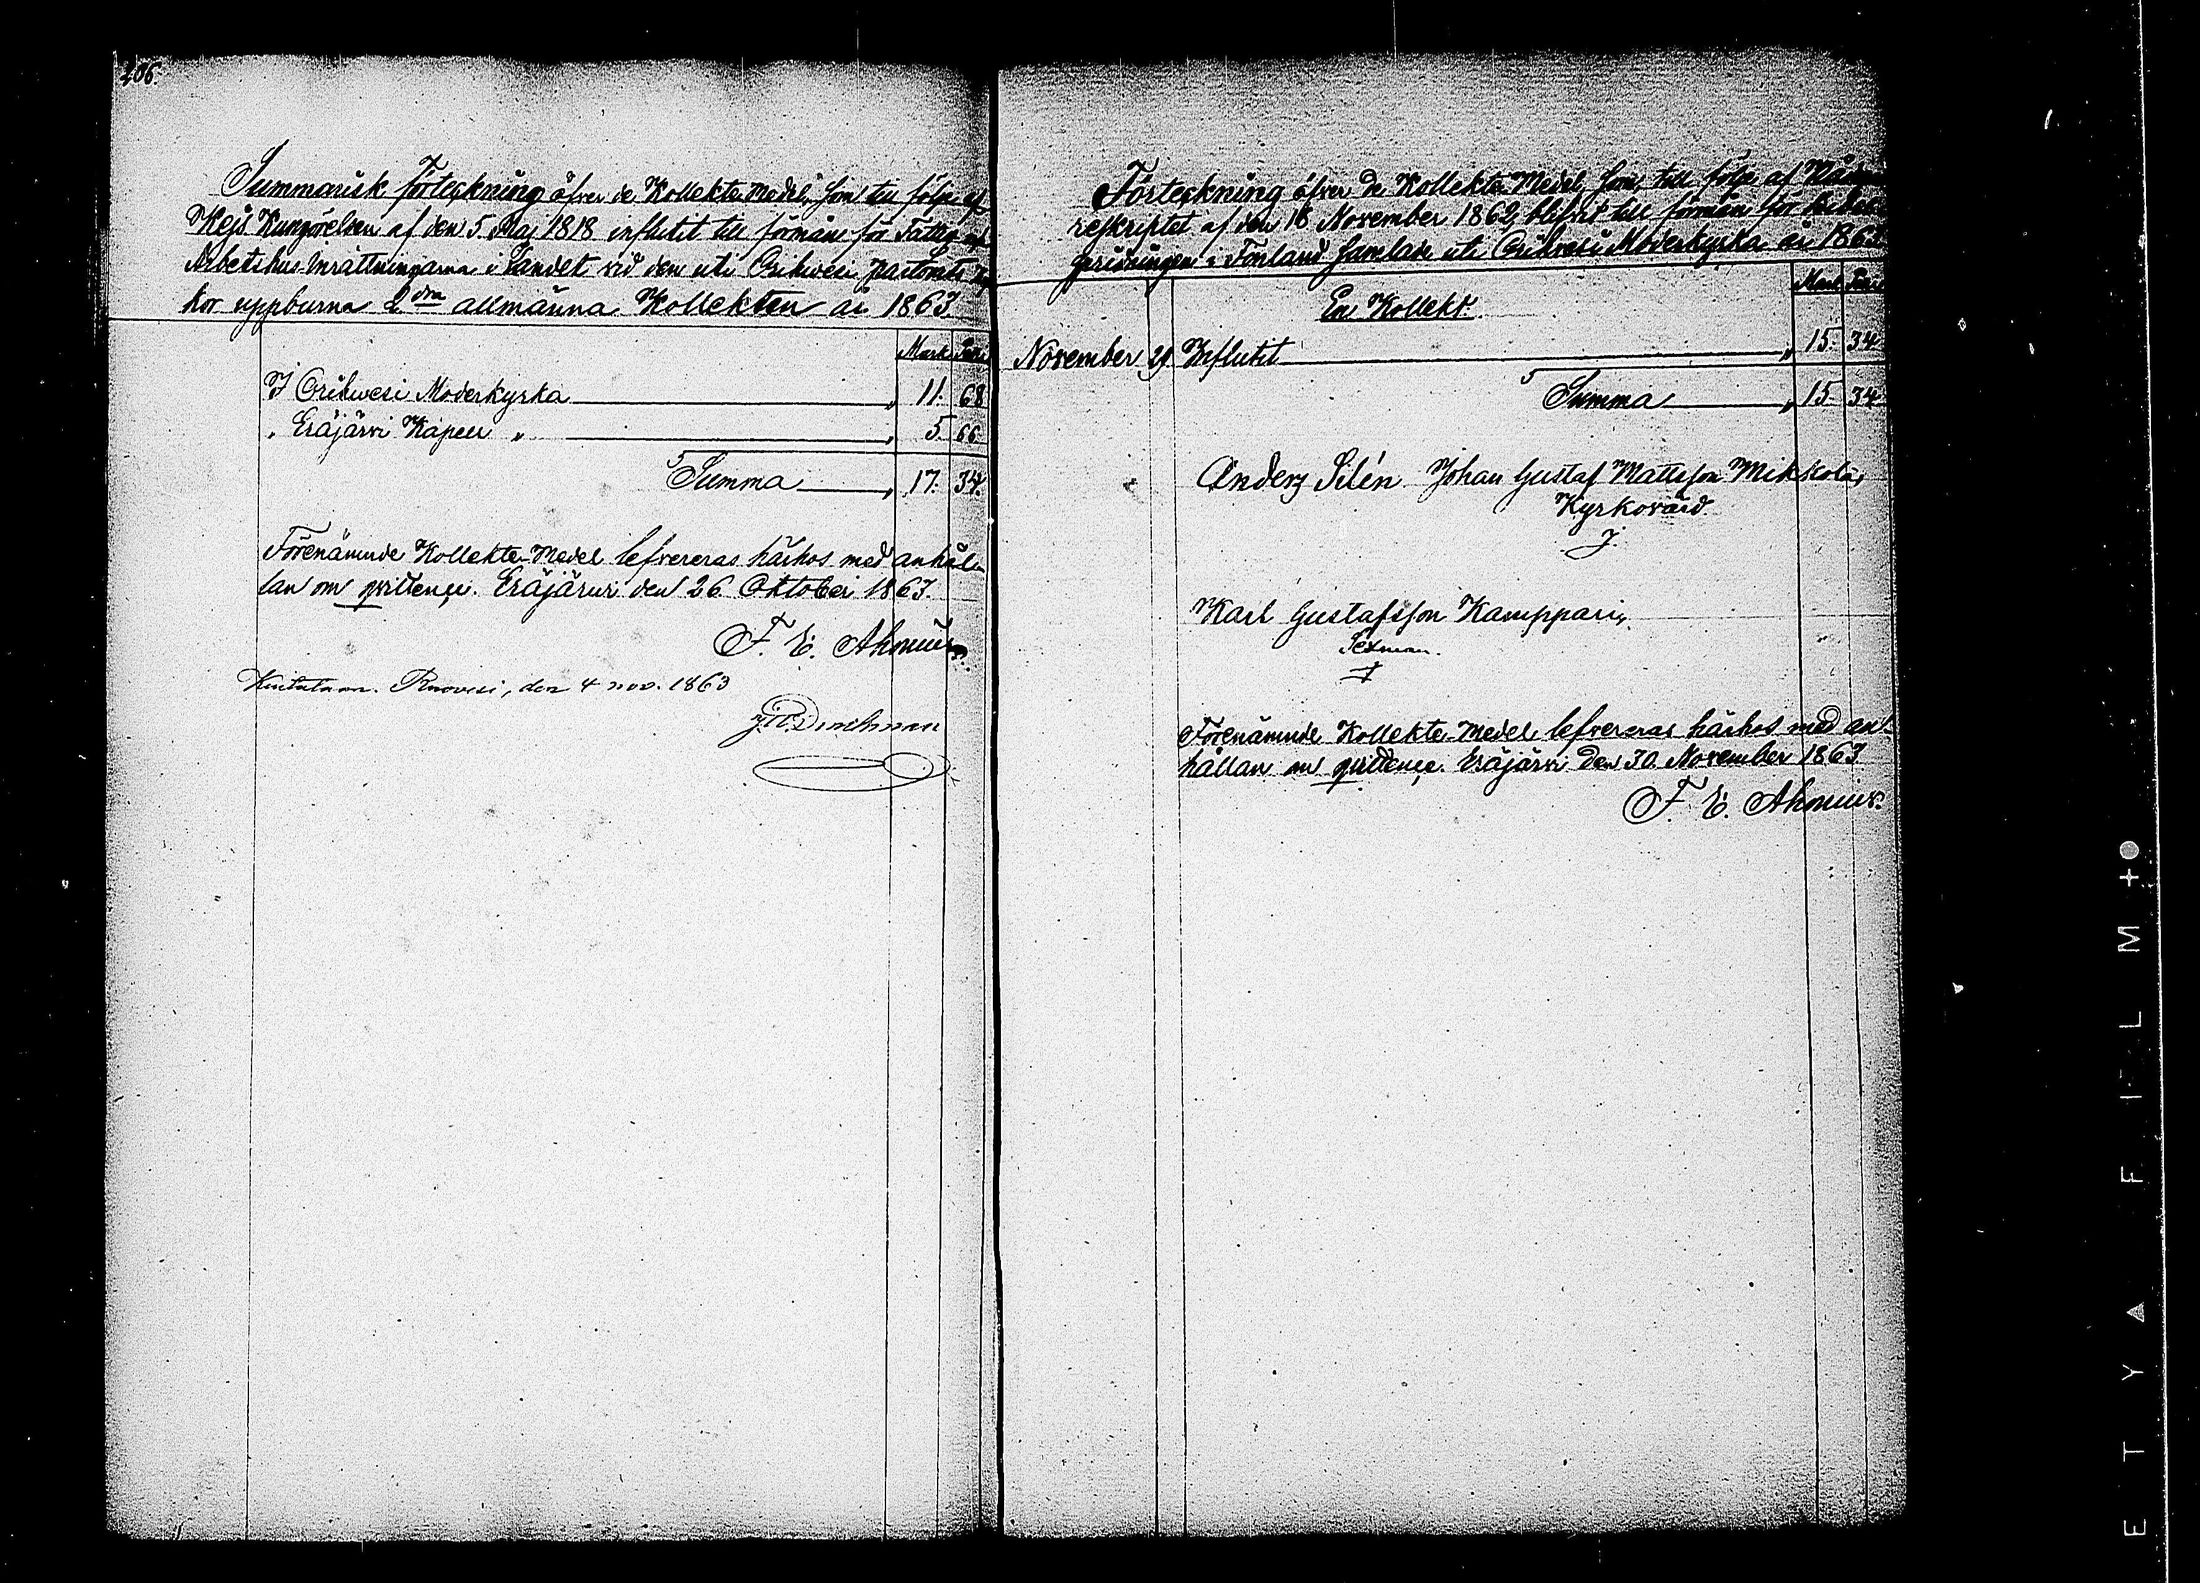 206.
Summarisk Förteckning öfver de Kollekte Medel, som till följe af
Kejs Kungörelsen af den 5 Maj 1818 influtit till förmån för Fattig och
Arbetshus-Inrättningarna i Landet vid den uti Orihvesi pastorats kyr
kor uppburna 2dra allmänna Kollekten år 1863
Mark Penni
I Orihvesi Moderkyrka „ 11. 68
„ Eräjärvi Kapell „ „ 5. 66
Summa „ 17. 34.
Förenämnde Kollekte-Medel lefvereras härhos med anhål-
lan om qvittence. Eräjärvi den 26 Oktober 1863.
F. E. Ahonius.
Ruovesi, den 4 nov. 1863
Förteckning öfver de Kollekte Medel, som, till följe af Nådiga
reskriptet af den 18 November 1862, blifvit till förmån för
i Finland samlade uti Orihvesi Moderkyrka år 1863
Mark Penni
En Kollekt.
November 29. Influtit „ 15. 34
Summa „ 15 34
Anders Silén Johan Gustaf Mattsson Mikkola,
Kyrkovärd
Karl Gustafsson Kamppari,
Sexman.
Förenämnde Kollekte-Medel lefvereras härhos med an-
hållan om qvittence. Eräjärvi den 30 November 1863
F. E. Ahonius.
ETYA FILM